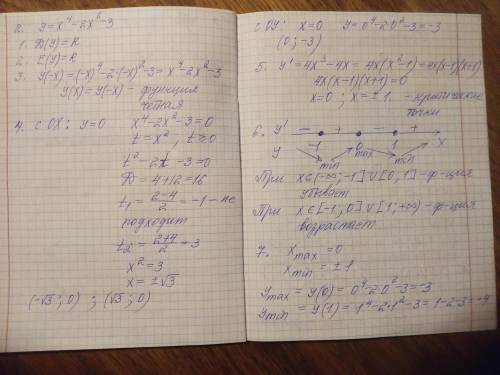 2. y=x⁴-2x²-3
1. D(y)=R
2. E(y)=R
3. y(-x)=(-x)⁴-2·(-x)²-3=x⁴-2x²-3
y(x)=y(-x) - функция
четная
4. с OX: y=0 x⁴-2x²-3=0
t=x², t≥0
t²-2t-3=0
D=4+12=16
t₁=(2-4)/2=-1-не
подходит
t₂=(2+4)/2=3
x²=3
x=±√3
(-√3; 0) ; (√3; 0)
с OY: x=0 y=0⁴-2·0²-3=-3
(0; -3)
5. y'=4x³-4x=4x(x²-1)=4x(x-1)(x+1)
4x(x-1)(x+1)=0
x=0; x=±1. - критические
точки
6. y' - + - +
y -1 0 1 x
min max min
При x∈(-∞;-1]∪[0;1]-ф-ция
убывает
При x∈[-1;0]∪[1;+∞)-ф-ция
возрастает
7. x max =0
x min = ±1
y max = y(0)=0⁴-2·0²-3=-3
y min = y(1)=1⁴-2·1²-3=1-2-3=-4